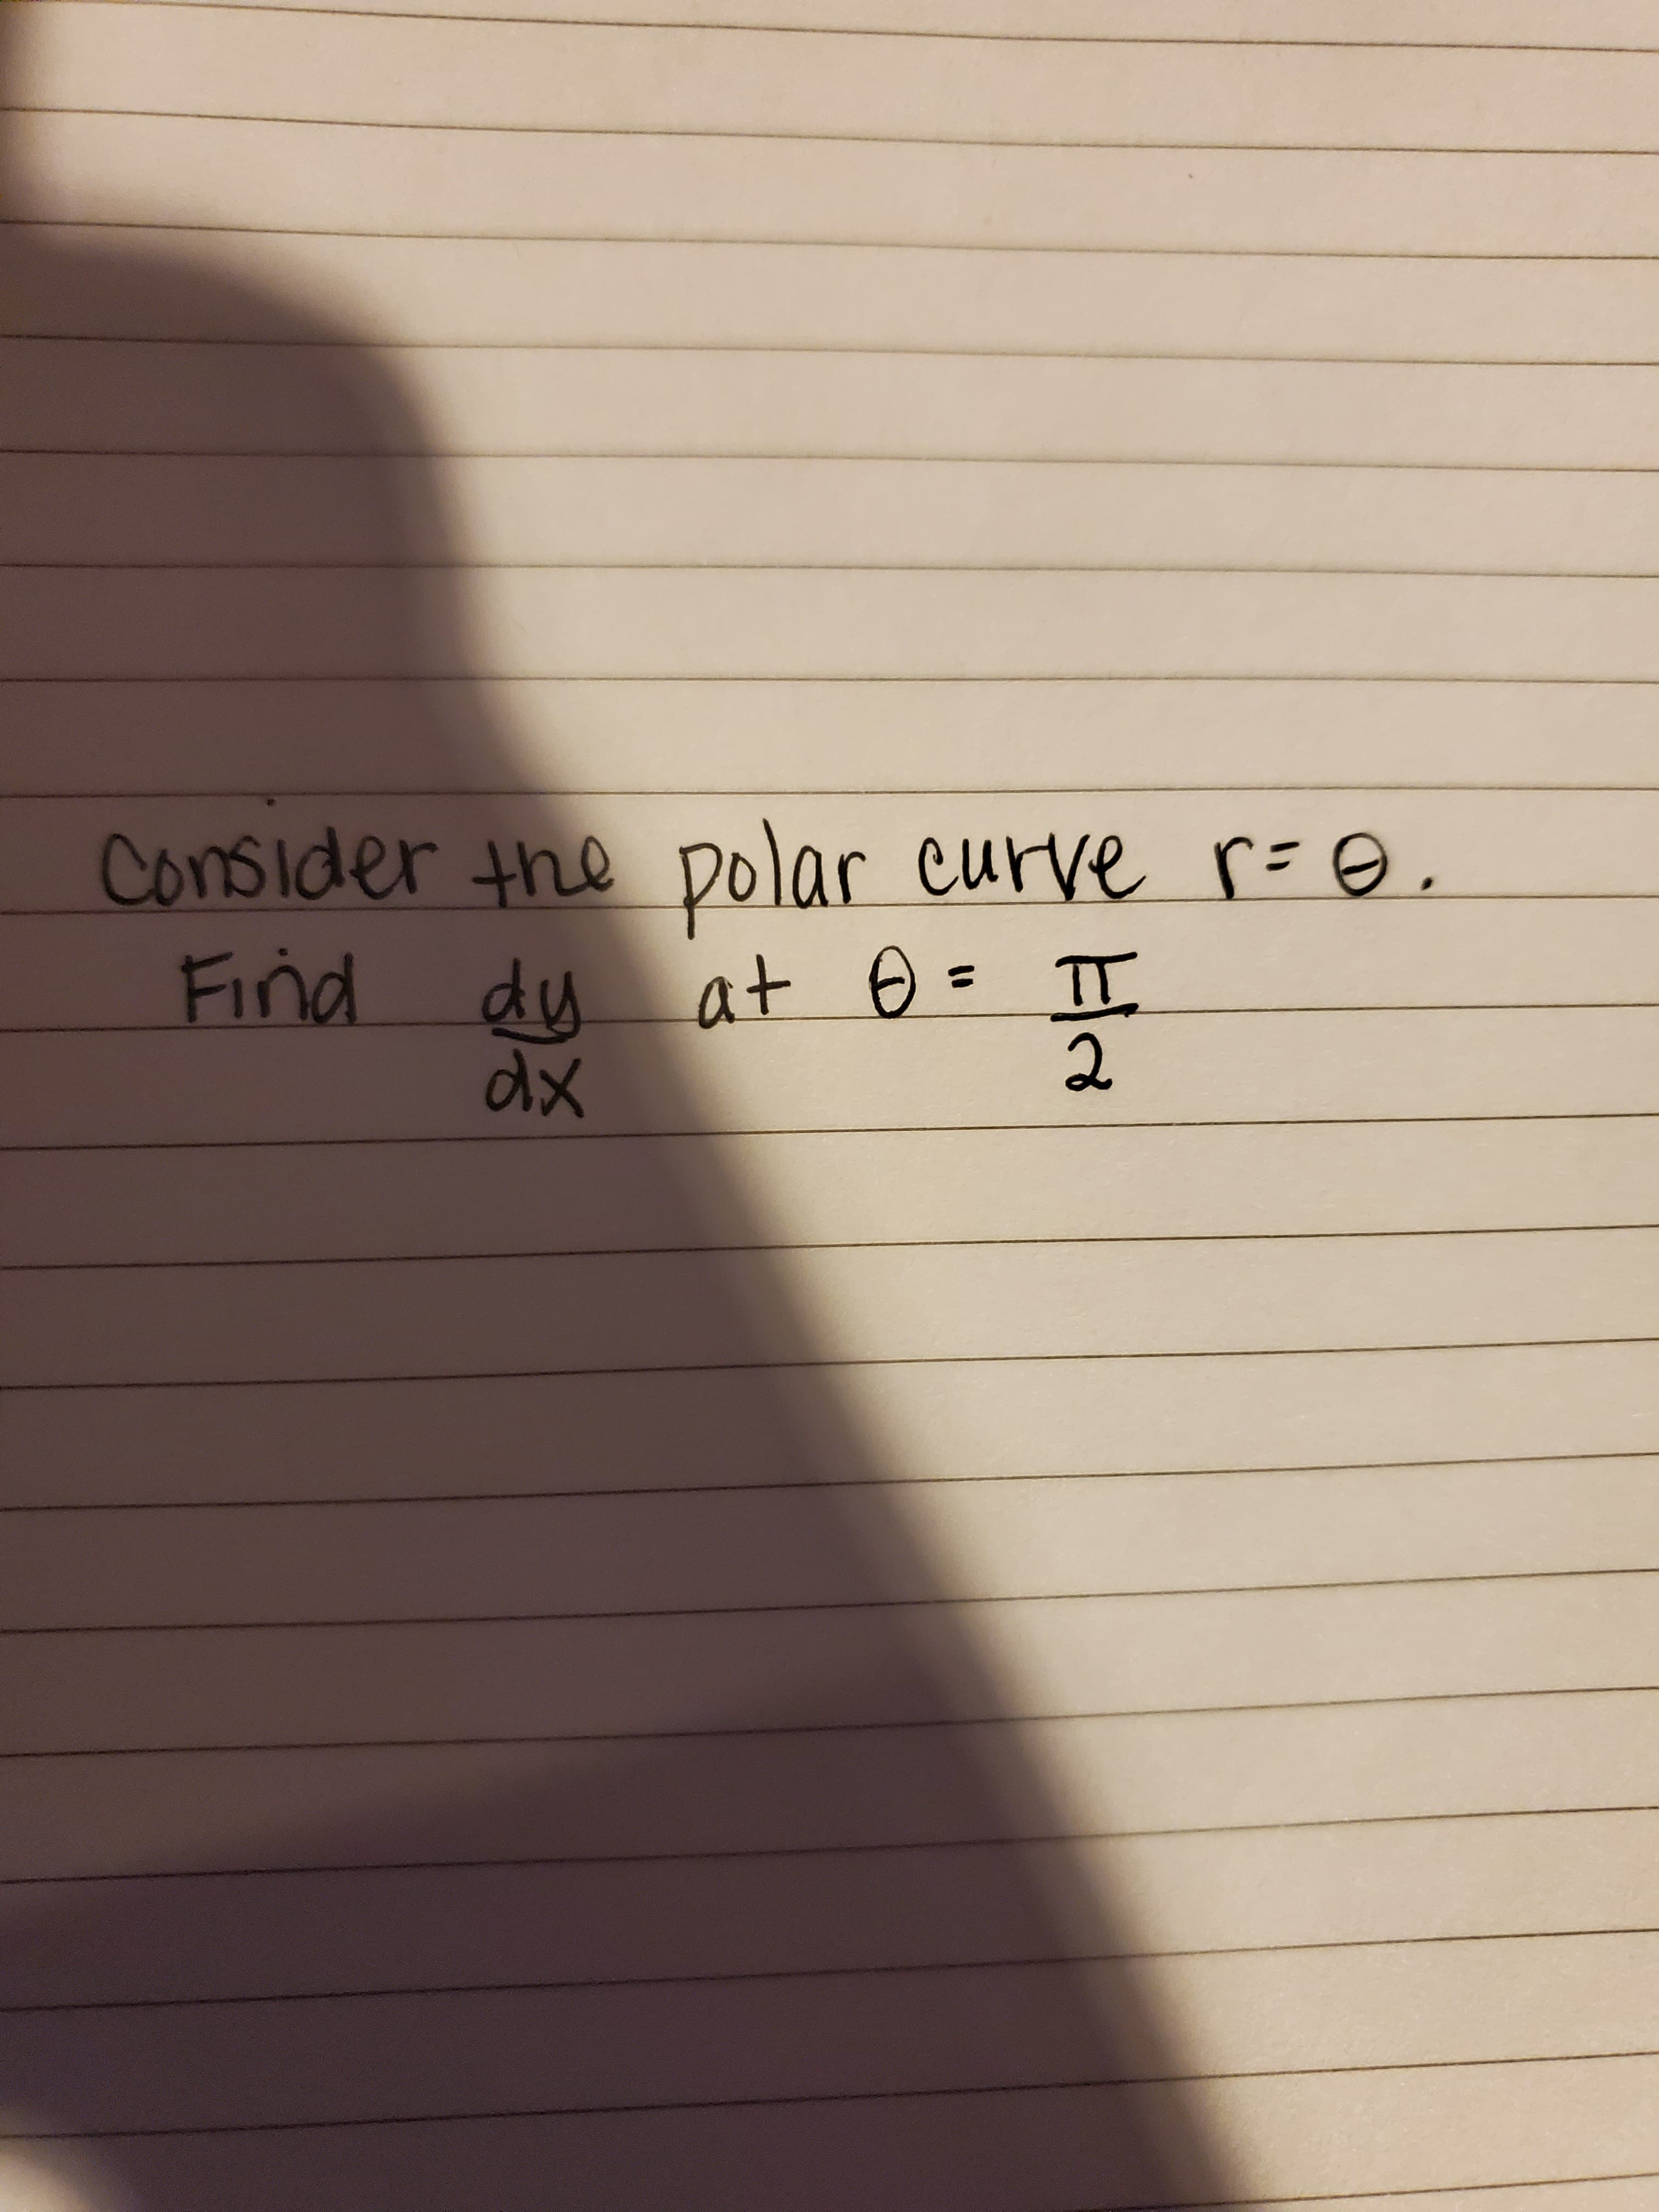 Consider the polar curve r = θ.
Find dy/dx at θ = π/2